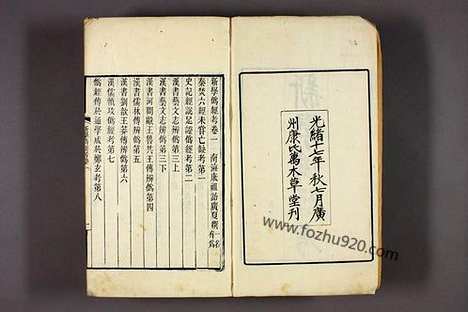 光緒十七年秋七月廣
州康氏萬木草堂刊
新學僞經考卷一　南海康祖詒廣廈撰
秦焚六經未嘗亡缺考第一
史記經說足證僞經考第二
漢書藝文志辨僞第三上
漢書藝文志辨僞第三下
漢書河間獻王魯共王傳辨僞第四
漢書儒林傳辨僞第五
漢書劉歆王莽傳辨僞第六
漢儒憤攻僞經考第七
僞經傳於通學成於鄭玄考第八
www.fozhu920.com